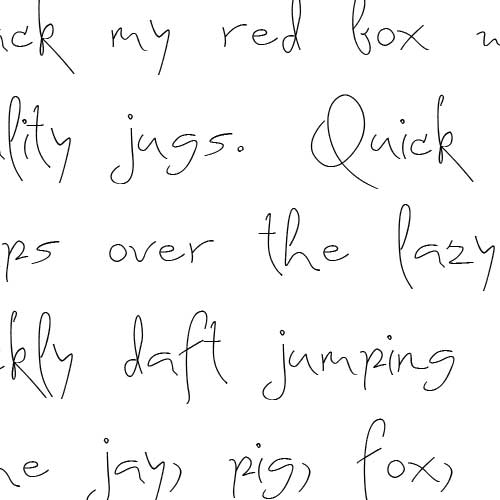 ack my red box w
lity jugs. Quick
ps over the lazy
kly daft jumping
he jay, pig, fox,